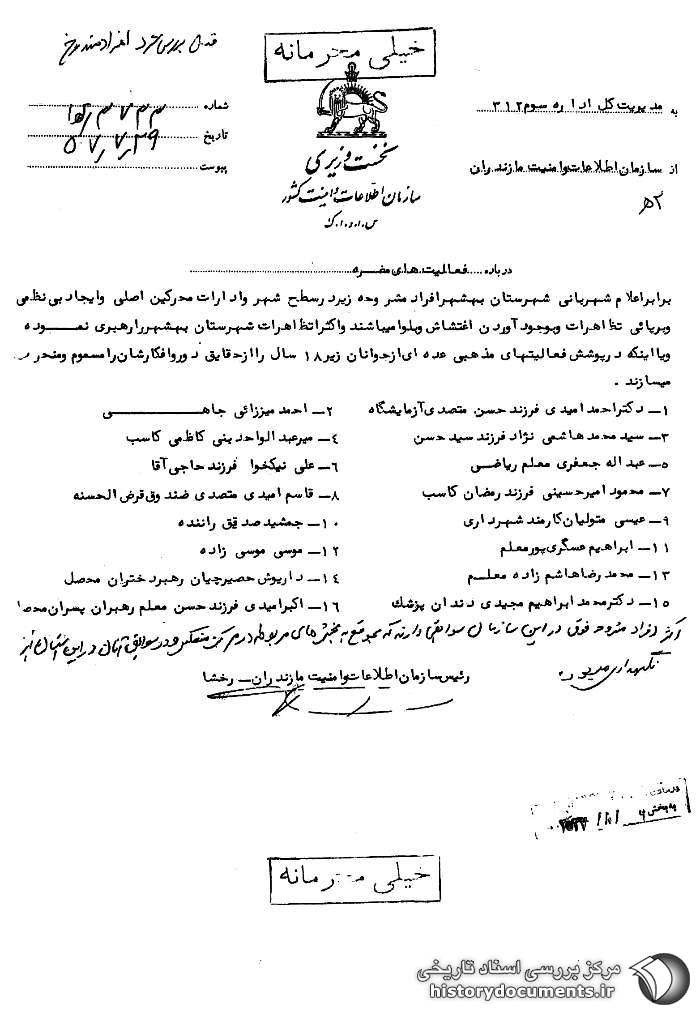 خیلی محرمانه
به مدیریت کل اداره سوم ۳۱۲
شماره
از سازمان اطلاعات وامنیت مازندران
تاریخ ۵۷/۷/۲۹
پیوست
۲هـ
نخست وزیری
سازمان اطلاعات وامنیت کشور
س.ا.و.ا.ک
درباره فعالیت های مضره
برابر اعلام شهربانی شهرستان بهشهر افراد مشروحه زیر در سطح شهر وادارات محرکین اصلی وایجاد بی نظمی
وبرپائی تظاهرات وبوجود آوردن اغتشاش وبلوا میباشند واکثر تظاهرات شهرستان بهشهر را رهبری نموده
ویا اینکه در پوشش فعالیتهای مذهبی عده ای از جوانان زیر ۱۸ سال را از حقایق دور وافکارشان را مسموم ومنحرف
میسازند .
۱ـ دکتر احمد امیدی فرزند حسن متصدی آزمایشگاه
۲ـ احمد میرزائی جاهی
۳ـ سید محمد هاشمی نژاد فرزند سید حسن
۴ـ میر عبدالواحد بنی کاظمی کاسب
۵ـ عبداله جعفری معلم ریاضی
۶ـ علی نیکخوا فرزند حاجی آقا
۷ـ محمود امیر حسینی فرزند رمضان کاسب
۸ـ قاسم امیدی متصدی صندوق قرض الحسنه
۹ـ عیسی متولیان کارمند شهرداری
۱۰ـ جمشید صدقی راننده
۱۱ـ ابراهیم عسگری پور معلم
۱۲ـ موسی موسی زاده
۱۳ـ محمد رضا هاشم زاده معلم
۱۴ـ داریوش حصیرچیان رهبر دختران محصل
۱۵ـ دکتر محمد ابراهیم مجیدی دندان پزشک
۱۶ـ اکبر امیدی فرزند حسن معلم رهبران پسران محصل
اکثر افراد مشروحه فوق در این سازمان سوابقی دارند که بموقع به بخش های مربوطه
نگهداری میشود
رئیس سازمان اطلاعات وامنیت مازندران ـ رخشا
خیلی محرمانه
مرکز بررسی اسناد تاریخی
historydocuments.ir